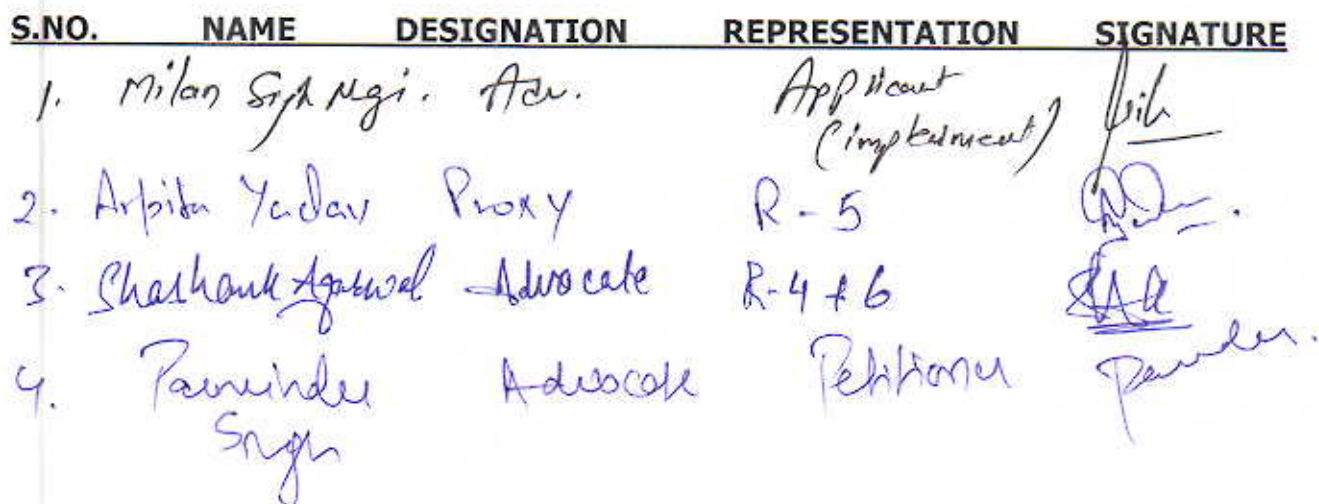 S.NO. NAME DESIGNATION REPRESENTATION SIGNATURE
1. Milan Sigh Negi. Adv. Applicant
(impleament)
2. Arpita Yadav Proxy R-5
3. Shashank Agarwal Advocate R-4 & 6
4. Parvinder Advocate Petitioner
Singh